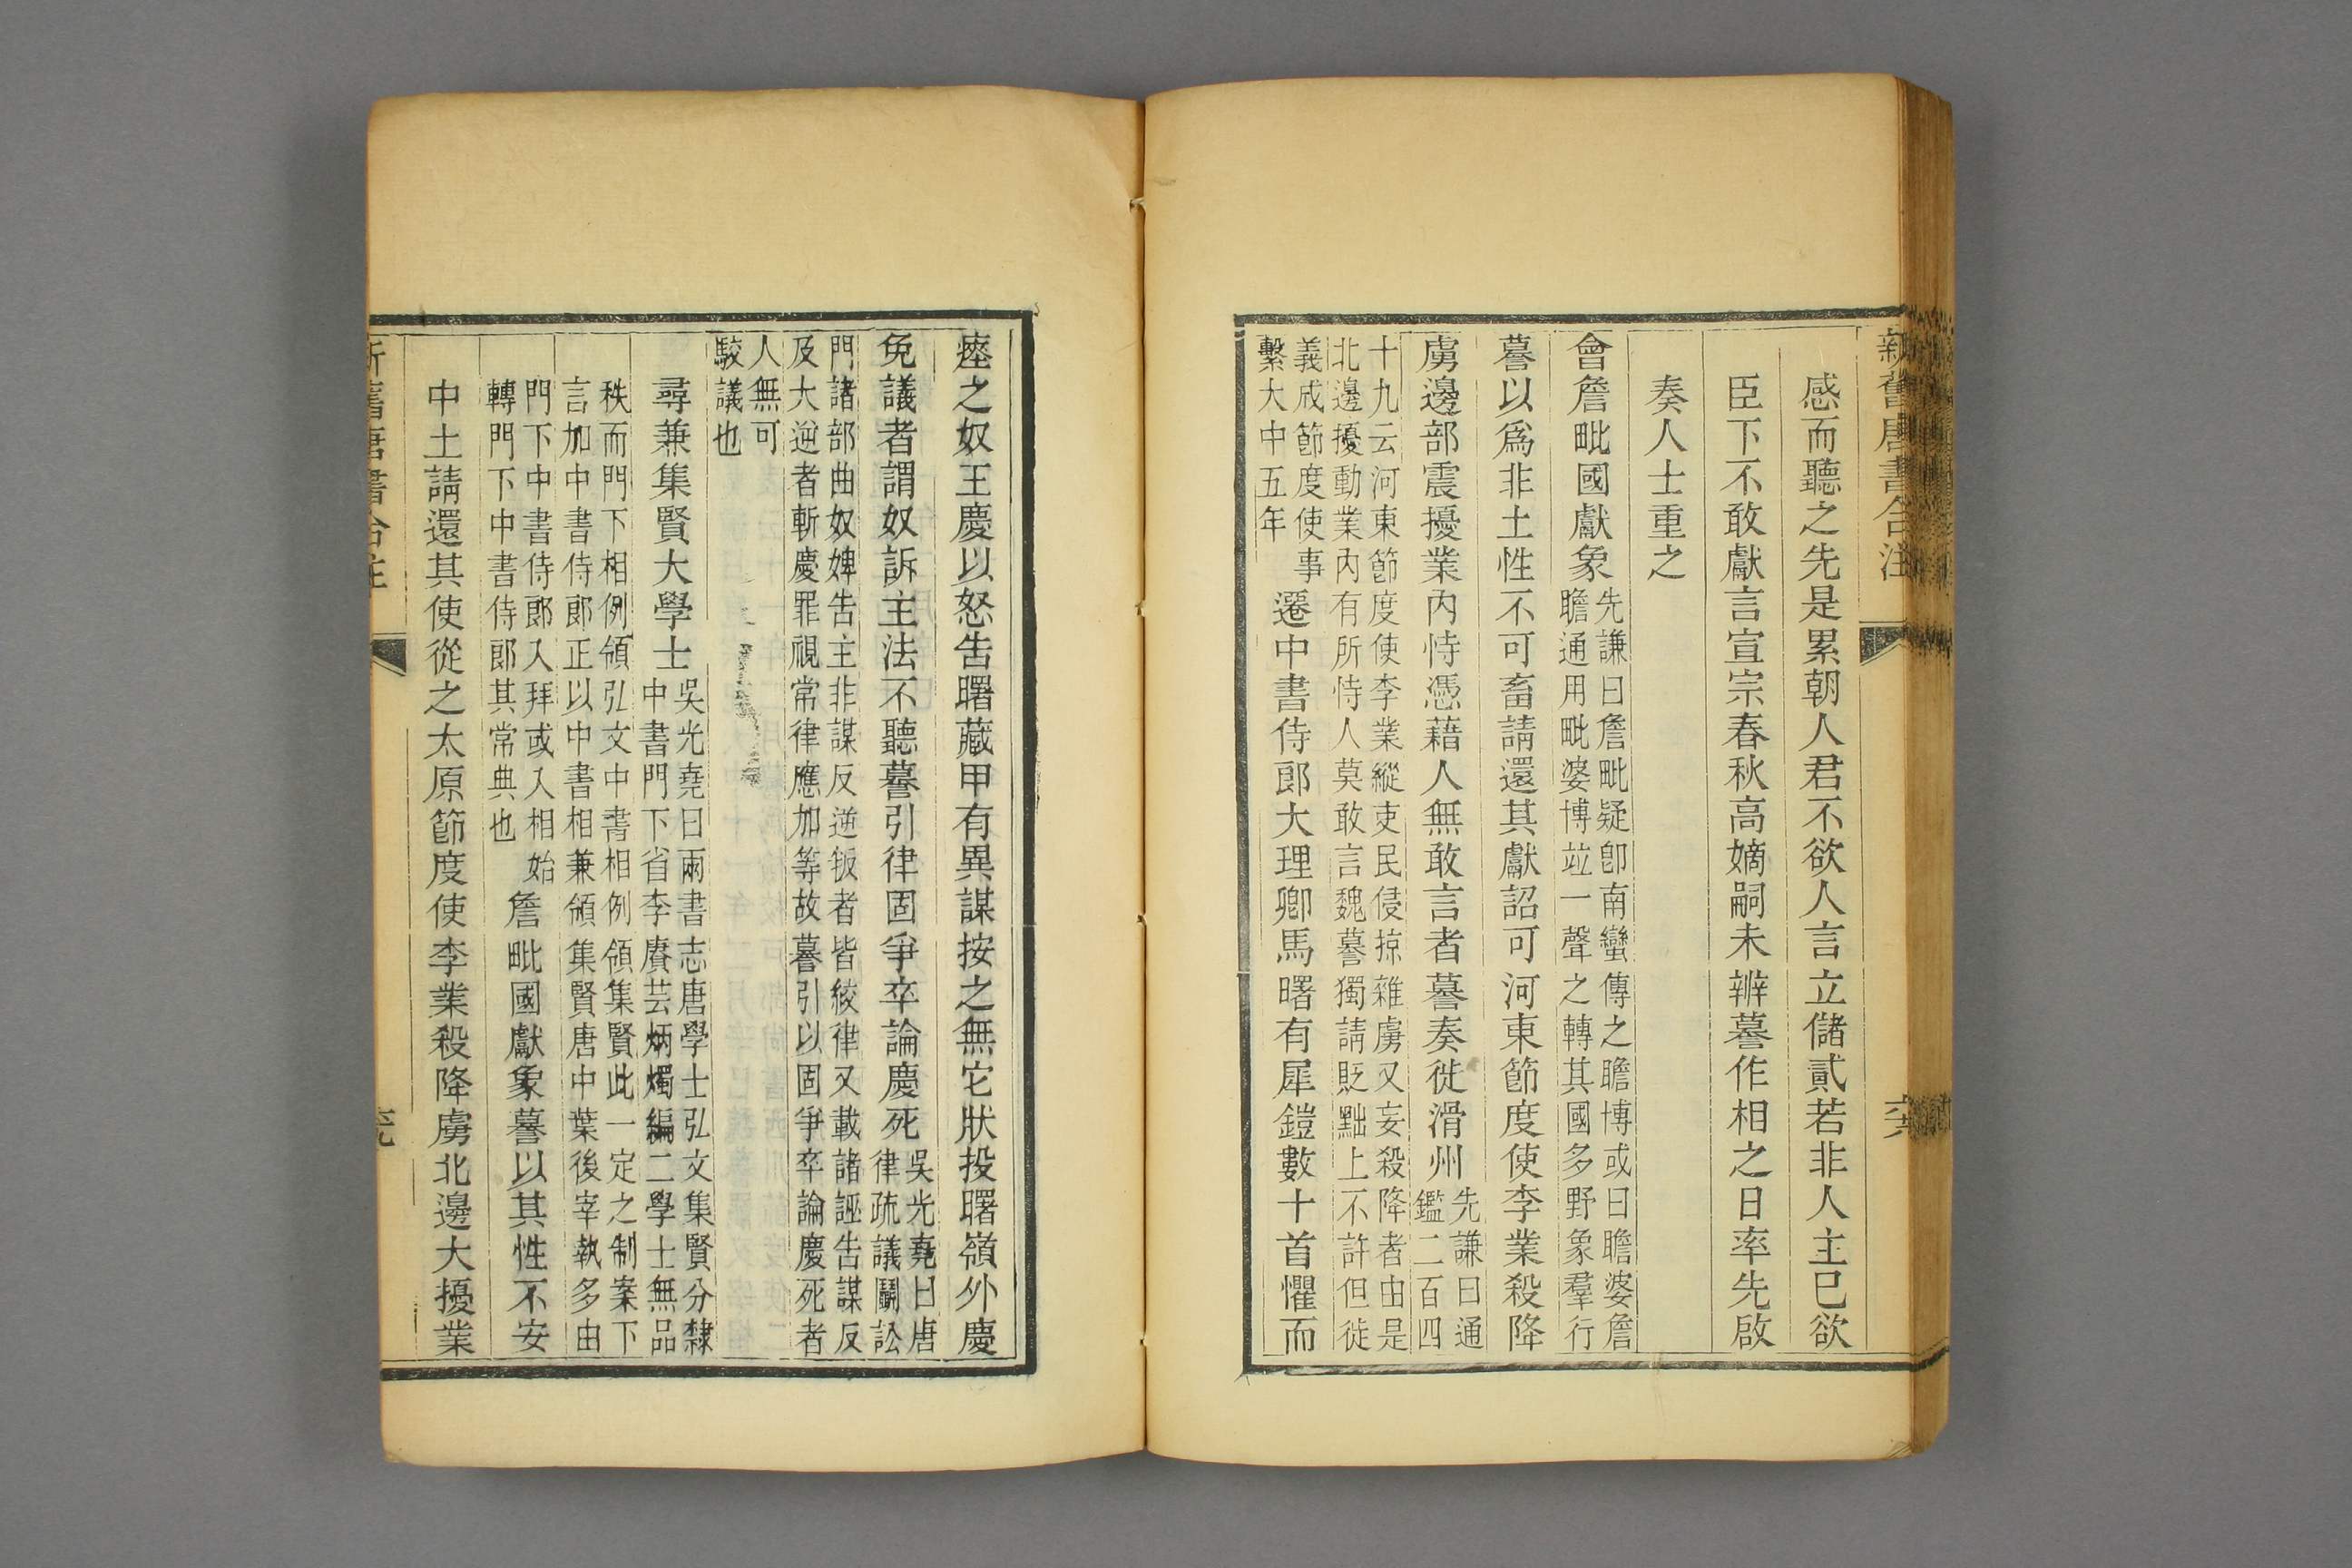 新舊唐書合注
感而聽之先是累朝人君不欲人言立儲貳若非人主已欲
臣下不敢獻言宣宗春秋高嫡嗣未辨謩作相之日率先啟
奏人士重之
會詹毗國獻象
先謙曰詹毗疑卽南蠻傳之瞻博或曰瞻婆詹
瞻通用毗婆博竝一聲之轉其國多野象羣行
謩以爲非土性不可畜請還其獻詔可河東節度使李業殺降
虜邊部震擾業內恃憑藉人無敢言者謩奏徙滑州
先謙曰通
鑑二百四
十九云河東節度使李業縱吏民侵掠雜虜又妄殺降者由是
北邊擾動業內有所恃人莫敢言魏謩獨請貶黜上不許但徙
義成節度使事
繫大中五年
遷中書侍郎大理卿馬曙有犀鎧數十首懼而
瘞之奴王慶以怒告曙藏甲有異謀按之無它狀投曙嶺外慶
免議者謂奴訴主法不聽謩引律固爭卒論慶死
吳光堯曰唐
律疏議鬭訟
門諸部曲奴婢告主非謀反逆叛者皆絞律又載諸誣告謀反
及大逆者斬慶罪視常律應加等故謩引以固爭卒論慶死者
人無可
駮議也
尋兼集賢大學士
吳光堯曰兩書志唐學士弘文集賢分隸
中書門下省李賡芸炳燭編二學士無品
秩而門下相例領弘文中書相例領集賢此一定之制案下
言加中書侍郎正以中書相兼領集賢唐中葉後宰執多由
門下中書侍郎入拜或入相始
轉門下中書侍郎其常典也
詹毗國獻象謩以其性不安
中土請還其使從之太原節度使李業殺降虜北邊大擾業